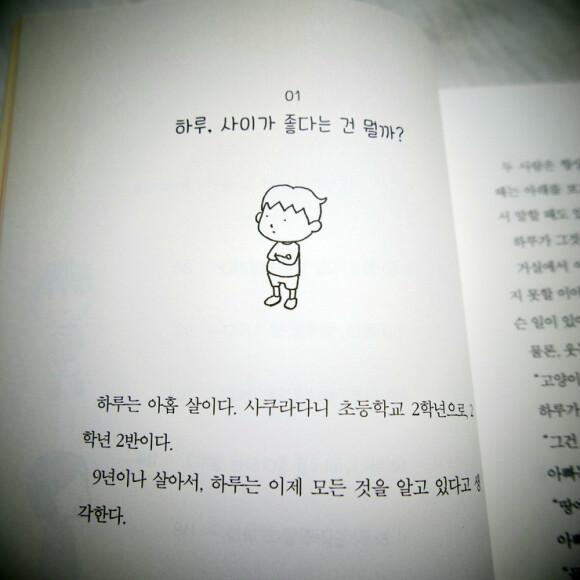 01
하루, 사이가 좋다는 건 뭘까?
하루는 아홉 살이다. 사쿠라다니 초등학교 2학년으로 2
학년 2반이다.
9년이나 살아서, 하루는 이제 모든 것을 알고 있다고 생
각한다.
두 사람은 항상
때는 아래를 보
서 말할 때도 칮
하루가 그것
거실에서
지 못할 이야
슨 일이 있
물론, 웃
"고양이
하루가
"그건
아빠는
"땅이
아빠